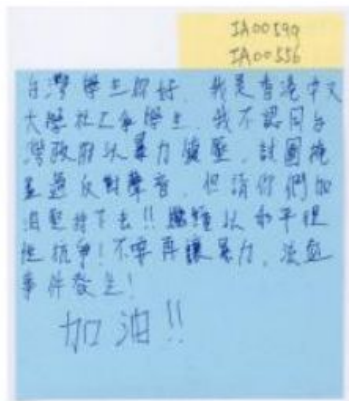 IA00590
IA00556
台灣學生你好，我是香港中文
大學社工系學生，我不認同台
灣政府以暴力鎮壓，試圖掩
蓋過反對聲音，但請你們加
油堅持下去!!繼續以和平理
性抗爭!不要再讓暴力、流血
事件發生!
加油!!